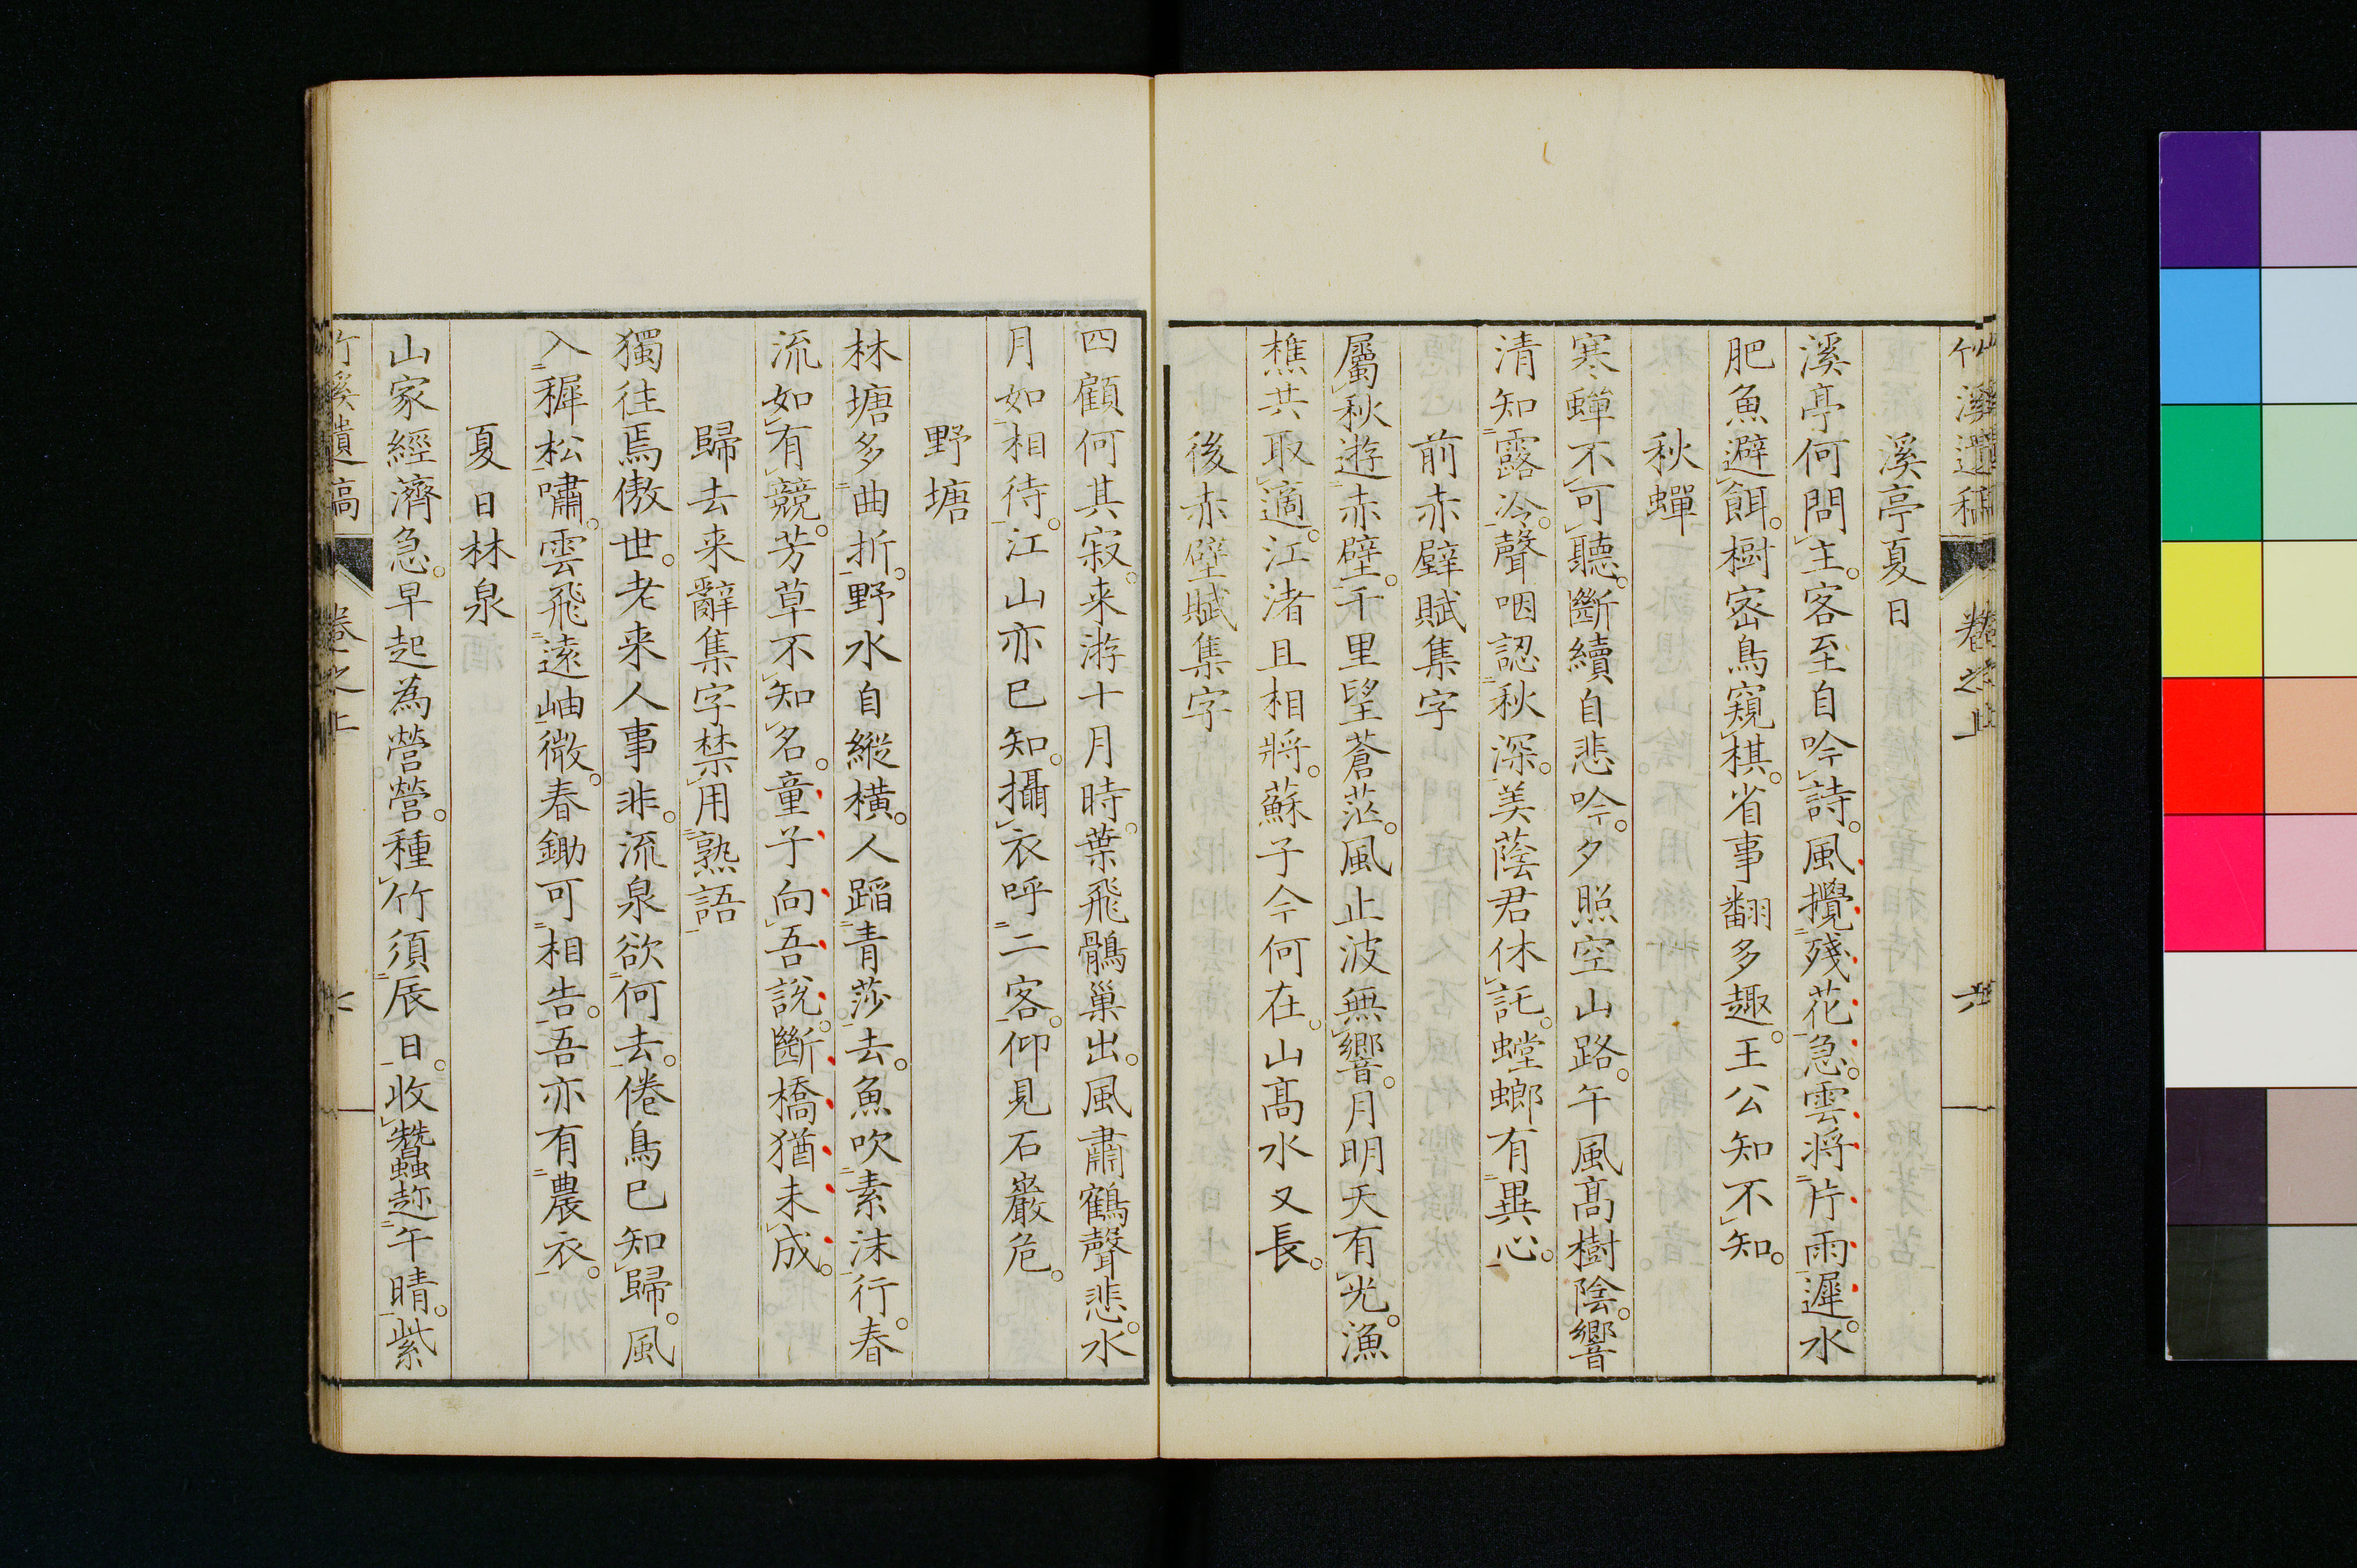 竹溪遺稿 卷之上 六
溪亭夏日
溪亭何問主客至自吟詩風攪殘花急雲將片雨遲水
肥魚避餌樹密鳥窺棋省事翻多趣王公知不知
秋蟬
寒蟬不可聽斷續自悲吟夕照空山路午風高樹陰響
清知露冷聲咽認秋深美蔭君休託螳螂有異心
前赤壁賦集字
屬秋遊赤壁千里望蒼茫風止波無響月明天有光漁
樵共取適江渚且相將蘇子今何在山高水又長
後赤壁賦集字
四顧何其寂来游十月時葉飛鶻巢出風肅鶴聲悲水
月如相待江山亦已知攝衣呼二客仰見石巖危
野塘
林塘多曲折野水自縱橫人蹈青莎去魚吹素沫行春
流如有競芳草不知名童子向吾說斷橋猶未成
歸去来辭集字禁用熟語
獨往焉傲世老来人事非流泉欲何去倦鳥已知歸風
入穉松嘯雲飛遠岫微春鋤可相告吾亦有農衣
夏日林泉
山家經濟急早起為營營種竹須辰日收蠶趂午晴紫
竹溪遺稿 卷之上